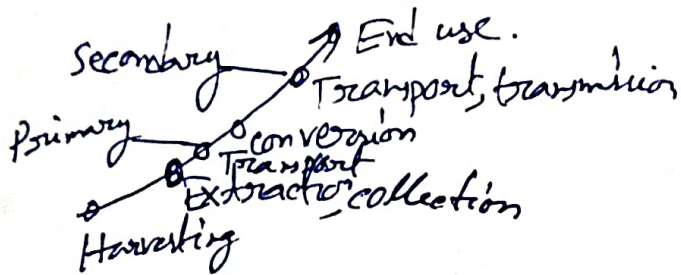 End use.
Secondary
Transport, transmission
Primary
conversion
Transport
Extraction, collection
Harvesting